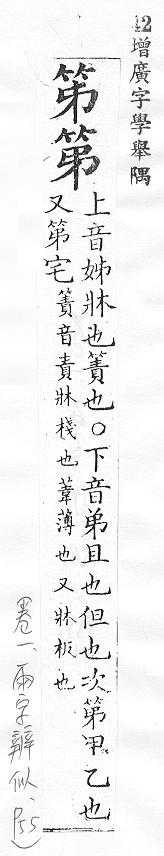 42增廣字學舉隅
笫第
上音姊牀也簀也○下音弟且也但也次第甲乙也
又第宅 簀音責牀棧也葦薄也又牀板也
卷一、兩字辨似、P55)